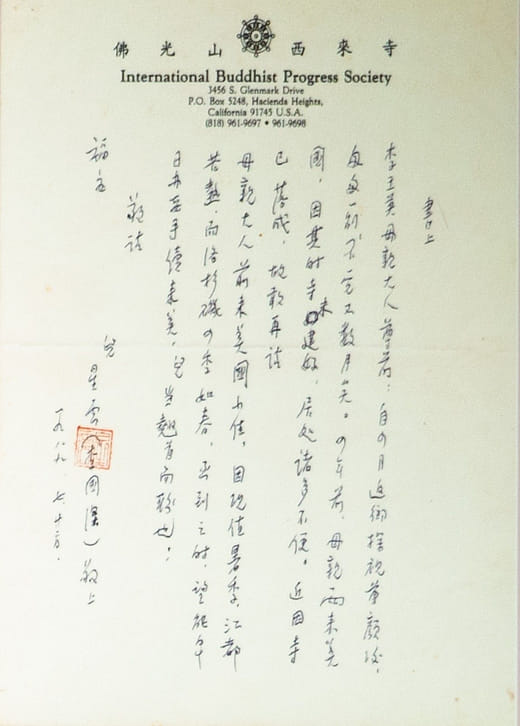 佛光山西來寺
International Buddhist Progress Society
3456 S. Glenmark Drive
P.O. Box 5248, Hacienda Heights,
California 91745 U.S.A.
(818) 961-9697 • 961-9698
書上
母親大人尊前:自四月返鄉探視尊顏後,
匆匆一別不覺又數月矣。四年前,母親兩來美
國,因其時寺未建好,居处諸多不便。近因寺
已落成,故敢再請
母親大人前來美國小住,因現值暑季,江都
苦熱,而洛杉磯四季如春,函到之时,望能早
日办妥手續來美,兒當翹首而盼也!
敬請
福安
兒 星雲(李國深)敬上
一九八九、七、十五.